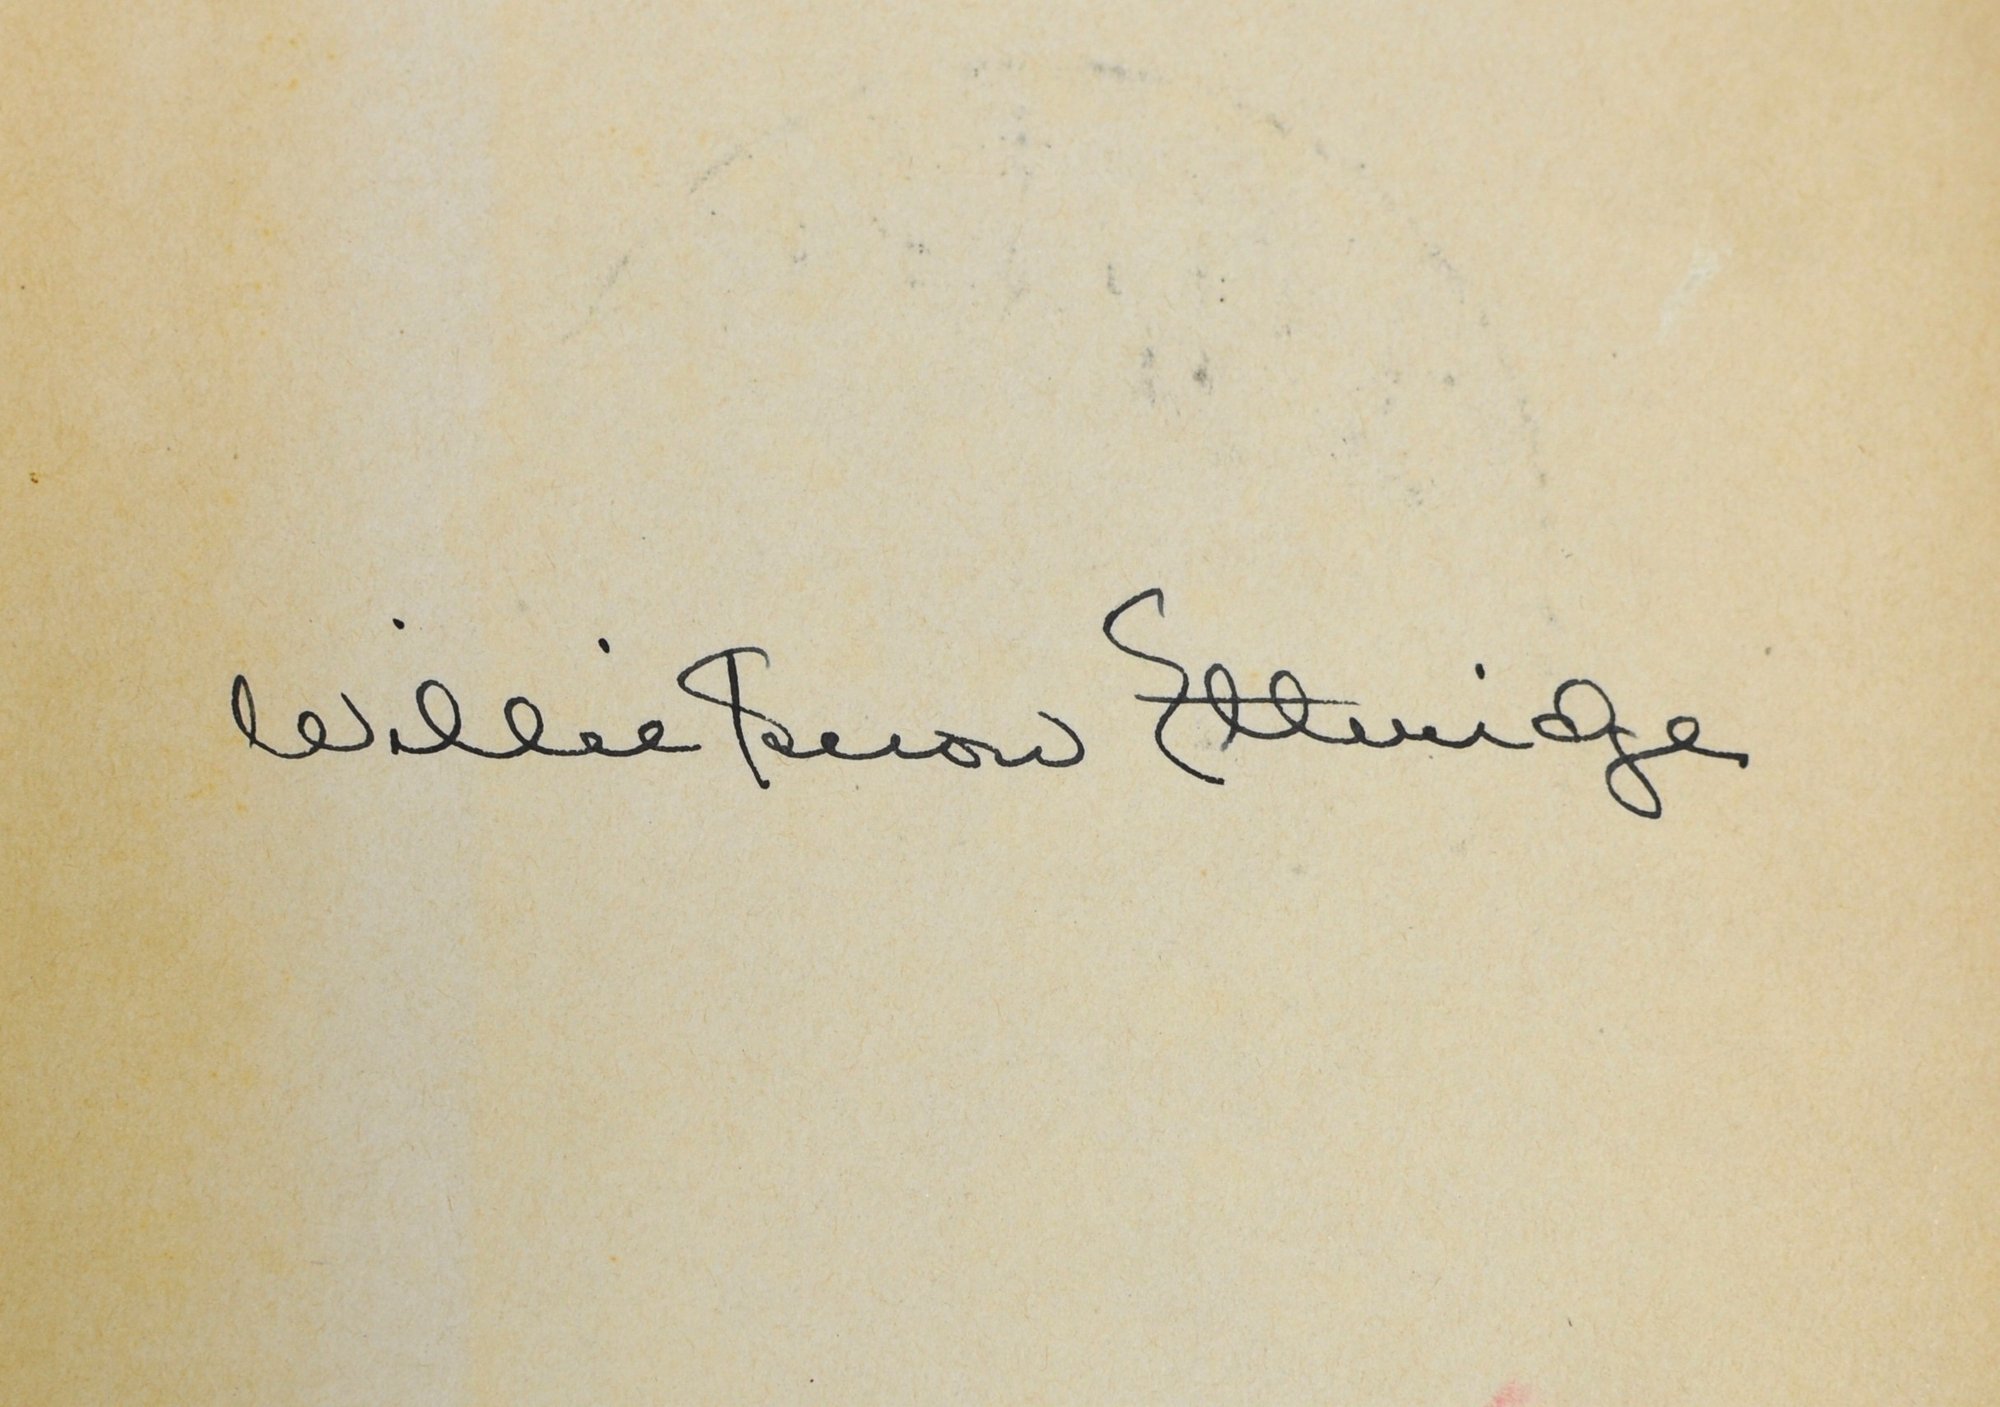 Willie Snow Ethridge